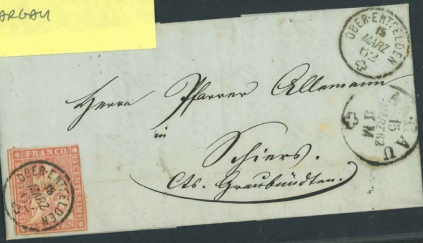 ARGAU
OBER-ENTFELDEN
15
MÄRZ
62
Herrn Pfarrer Allemann
in
Schiers.
Cts. Graubündten.
AU
15
MÆRZ 62
II M
FRANCO
OBER-ENTFELDEN
15
MÄRZ